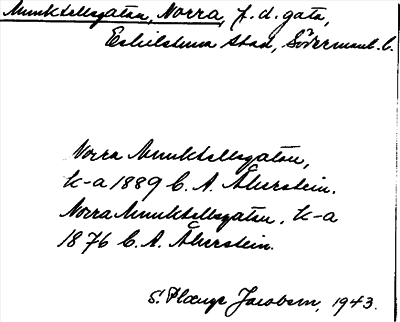 Munktellsgatan, Norra, f.d. gata,
Eskilstuna stad, Södermanl. l.
Norra Munktellsgatan,
k-a 1889 C. A. Åkerstein.
Norra Munktellsgatan. k-a
1876 C. A. Åkerstein.
S. Jacobson, 1943.